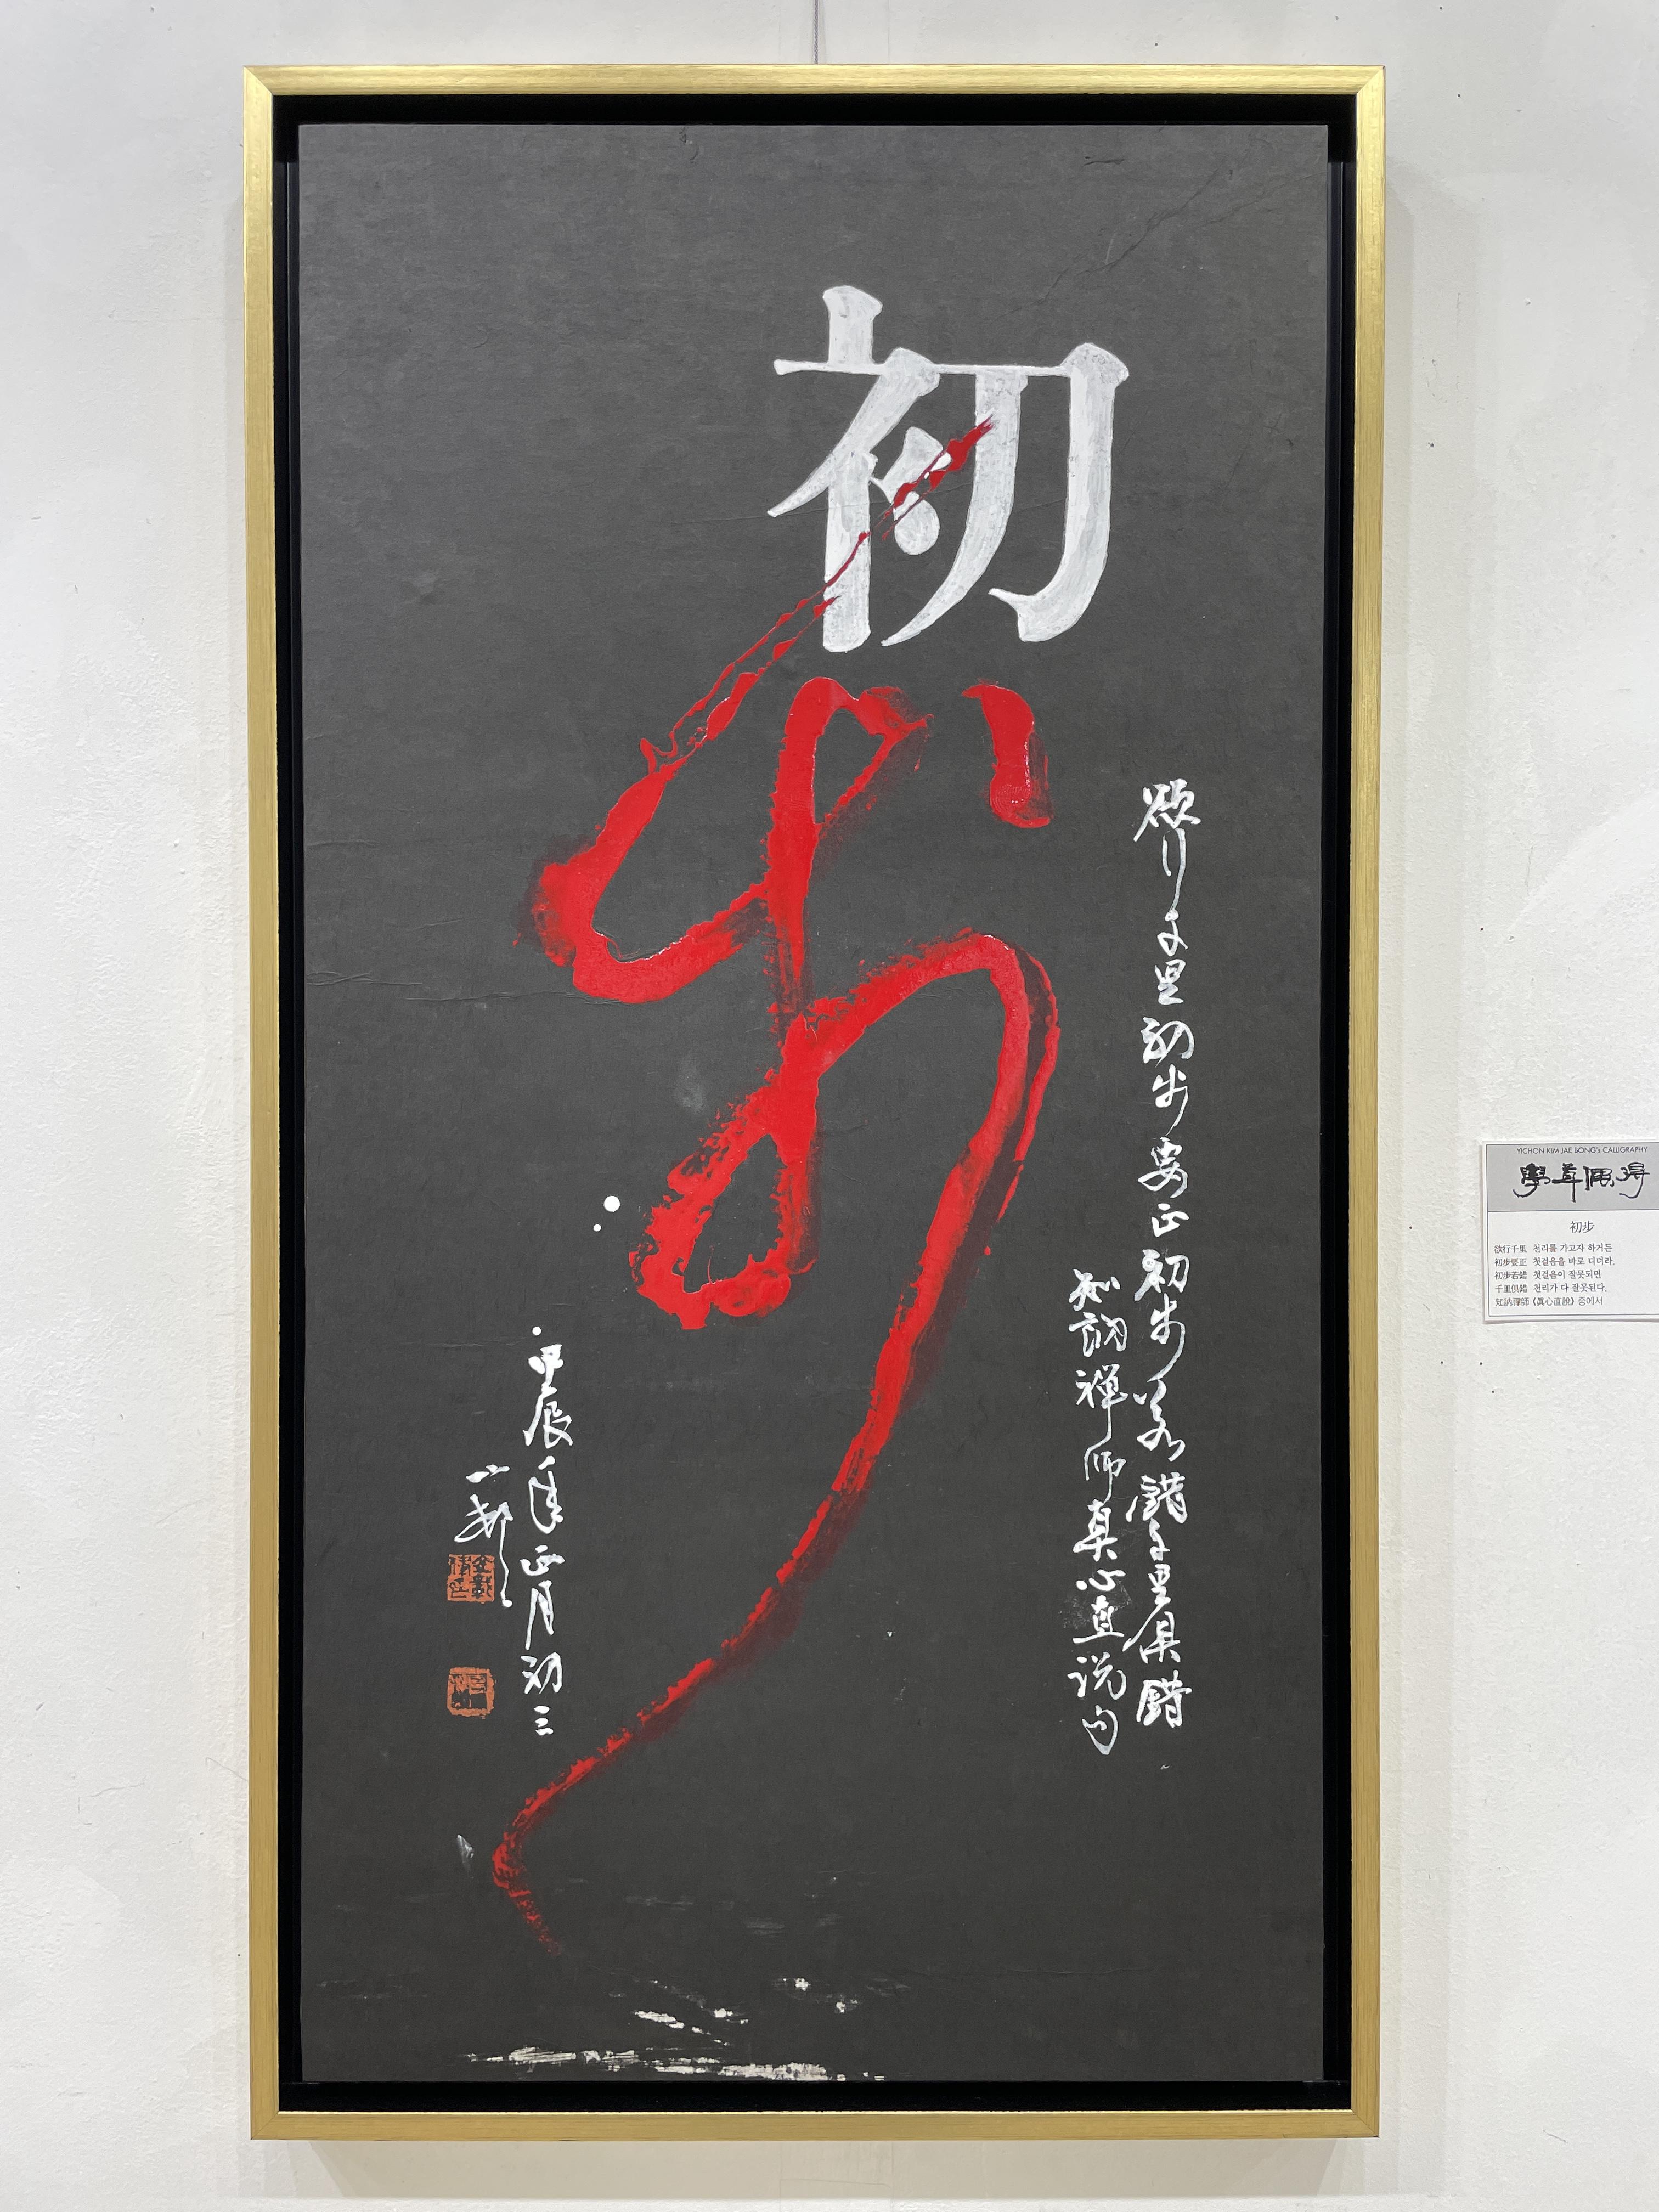 初
步
欲行千里初步要正初步若錯千里俱錯
知訥禅师真心直说句
甲辰年正月初三
YICHON KIM JAE BONG's CALLIGRAPHY
初步
欲行千里 천리를 가고자 하거든
初步要正 첫걸음을 바로 디뎌라.
初步若錯 첫걸음이 잘못되면
千里俱錯 천리가 다 잘못된다.
知訥禪師 《眞心直說》 중에서